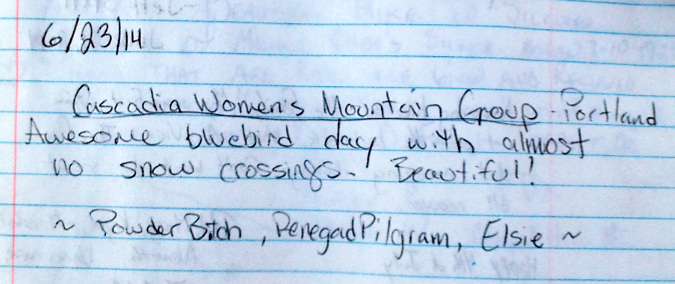 6/23/14
Cascadia Women's Mountain Group - Portland
Awesome bluebird day with almost
no snow crossings. Beautiful!
~ Powder Bitch, RenegadPilgram, Elsie ~